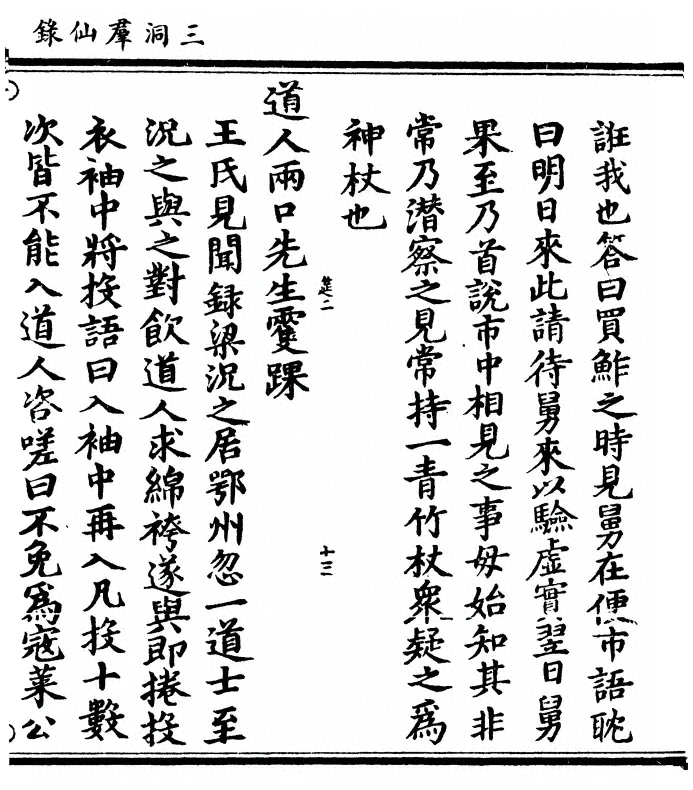 三洞羣仙錄
誑我也答曰買鮓之時見舅在便市語耽
曰明日來此請待舅來以驗虛實翌日舅
果至乃首說市中相見之事毋始知其非
常乃潛察之見常持一青竹杖衆疑之爲
神杖也
筵二 十三
道人兩口先生䨇踝
王氏見聞録梁況之居鄂州忽一道士至
況之與之對飲道人求綿袴遂與即捲投
衣袖中將投語曰入袖中再入凡投十數
次皆不能入道人咨嗟曰不免爲寇萊公